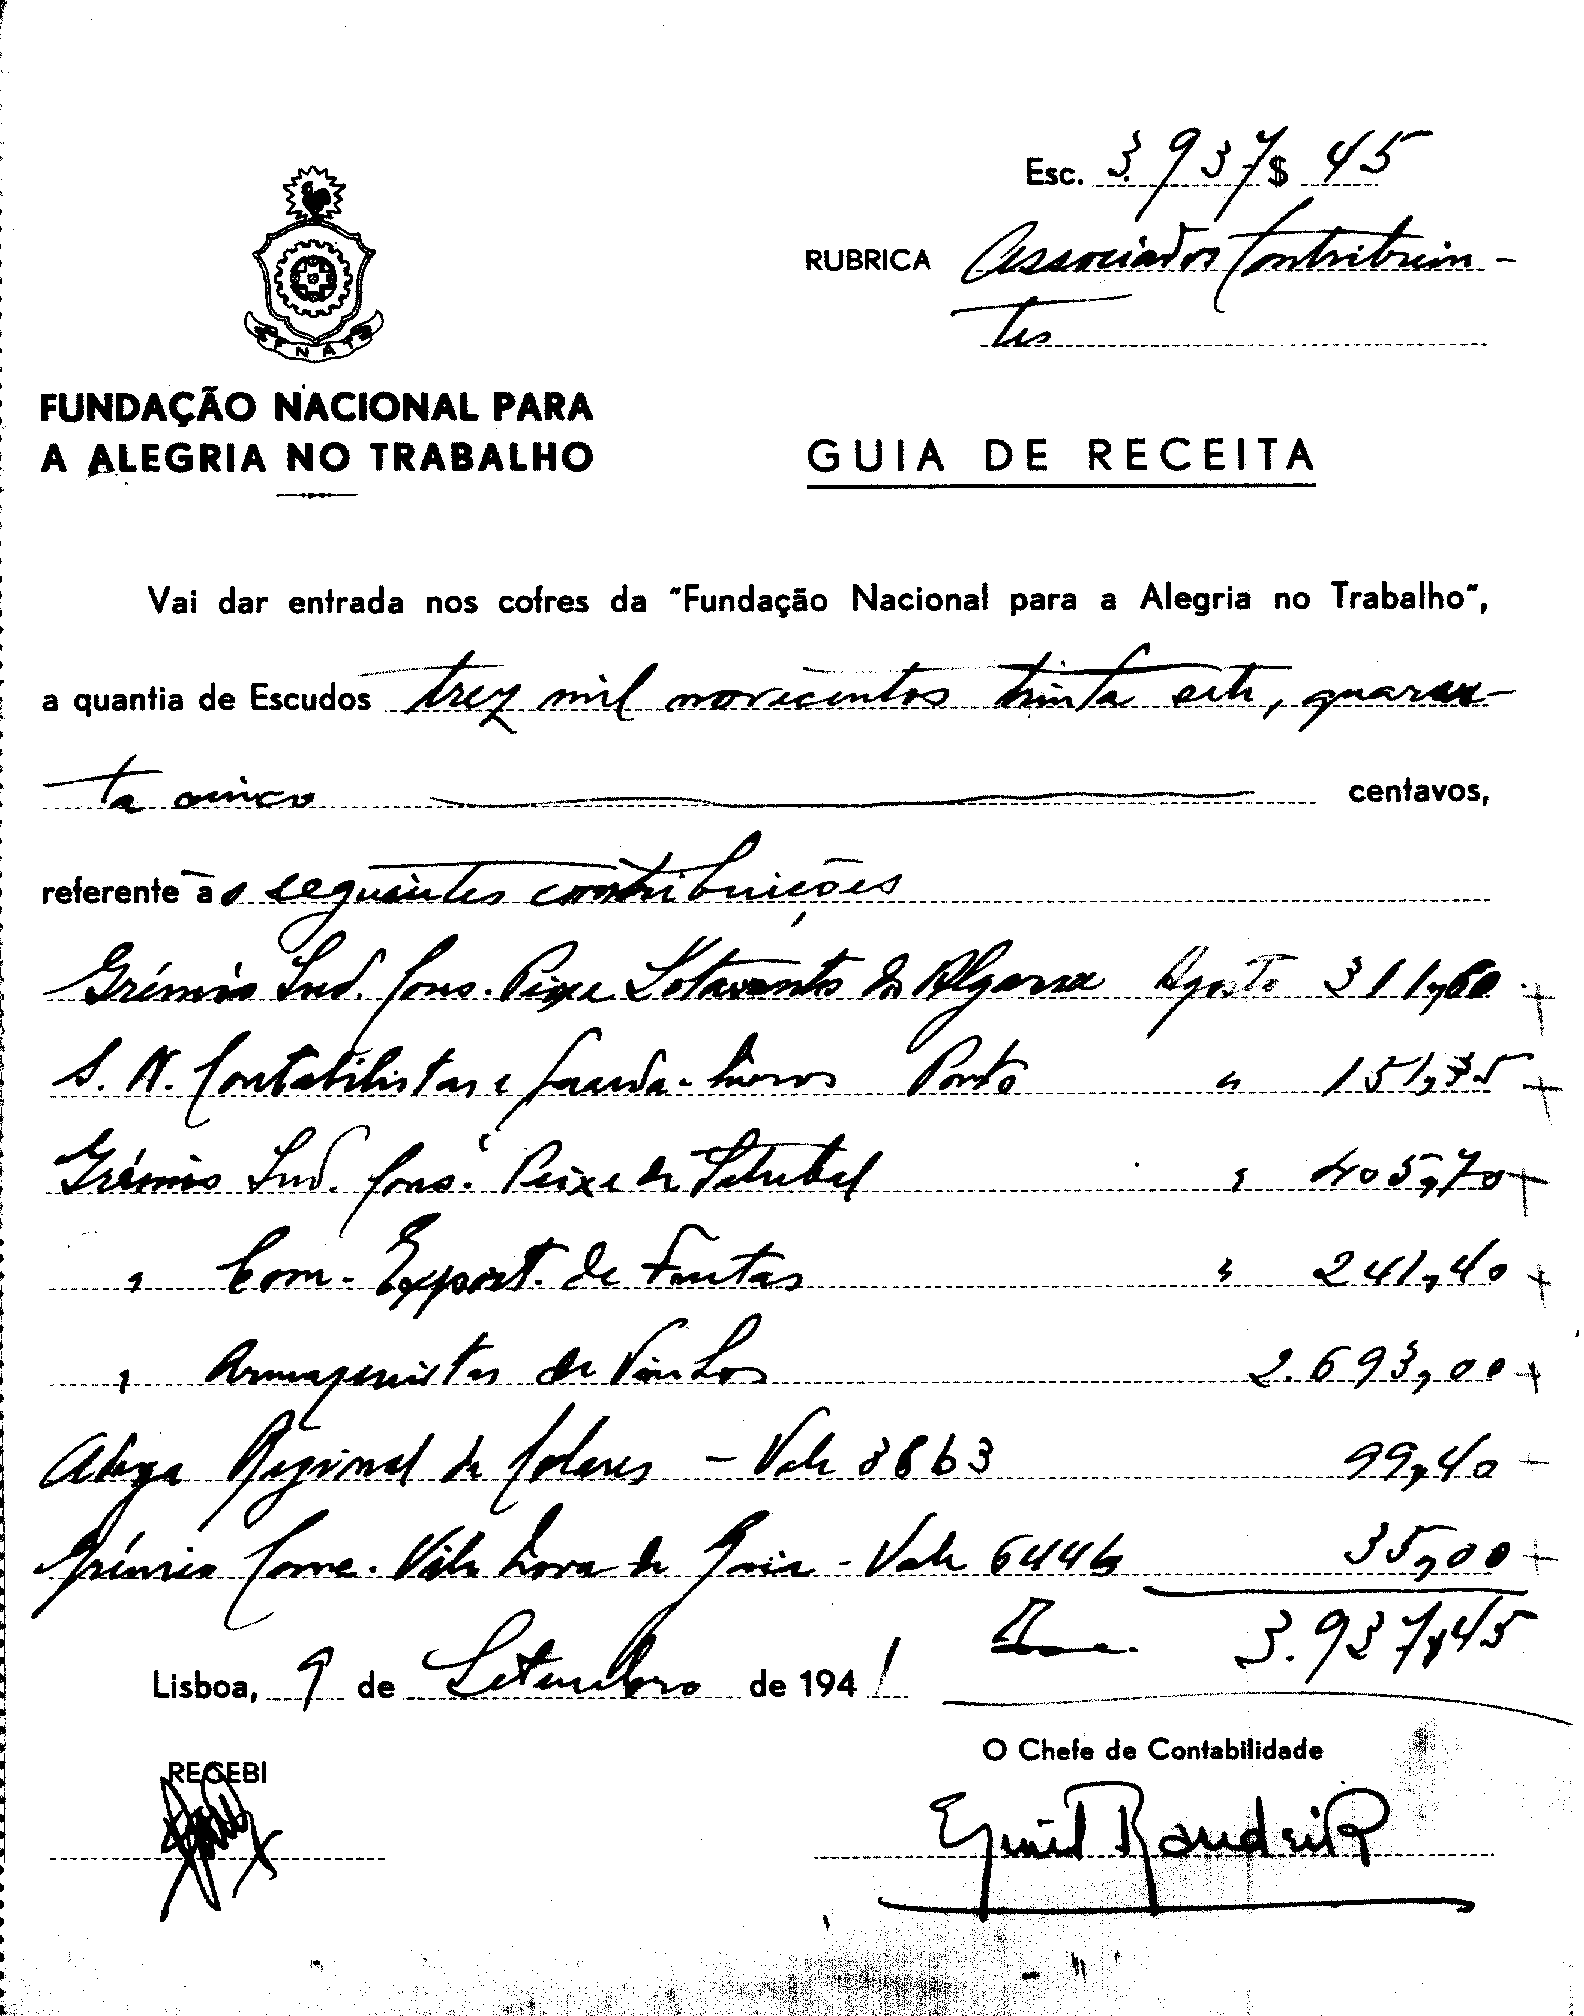 Esc. 3.937$45
RUBRICA Associados Contribuin-
tes
FNAT
FUNDAÇÃO NACIONAL PARA
A ALEGRIA NO TRABALHO
GUIA DE RECEITA
Vai dar entrada nos cofres da "Fundação Nacional para a Alegria no Trabalho",
a quantia de Escudos trez mil novecentos trinta sete, quaren-
ta cinco centavos,
referente a seguintes contribuições
Grémio Ind. Cons. Peixe Sotavento do Algarve Agosto 311,60
S. N. Contabilistas e Guarda-livros Porto " 151,35
Grémio Ind. Cons. Peixe de Setubal " 405,70
" Com. Export. de Frutas " 241,40
" Armazenistas de Vinhos 2.693,00
Adega Regional de Colares - Vale 8863 99,40
Grémio Come. Vila Nova de Gaia - Vale 6446 35,00
3.937,45
Lisboa, 9 de Setembro de 1941
O Chefe de Contabilidade
RECEBI